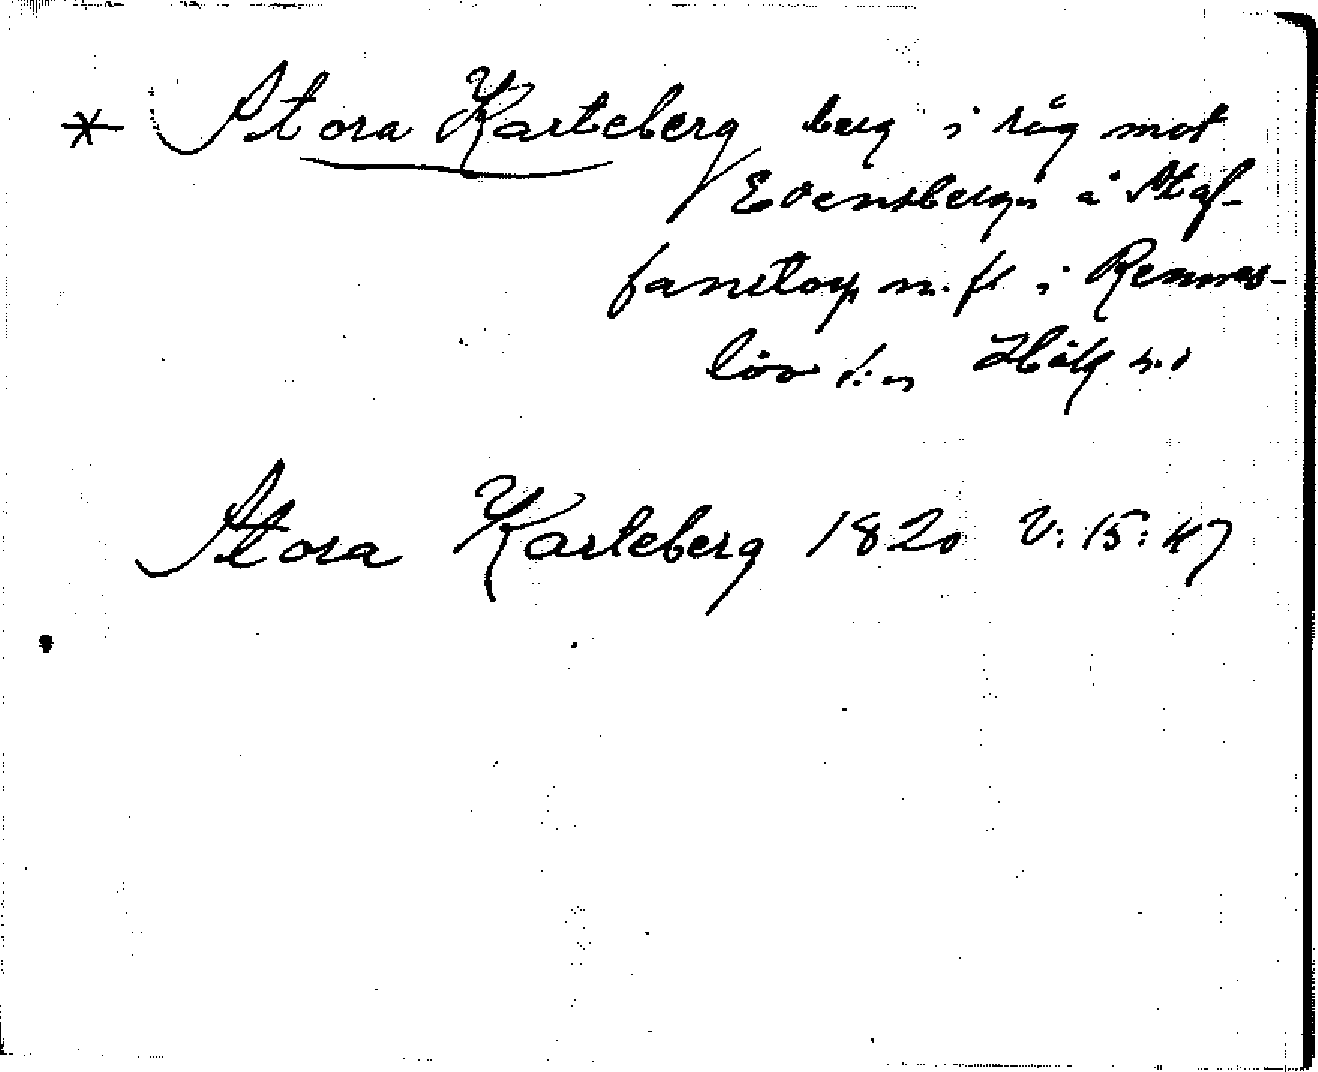 * Stora Karleberg berg i råg mot
Evensberga å Staf-
fanstorp m. fl i Rennes-
löv s:n Hälj h.d
Stora Karleberg 1820 V: 15: 47